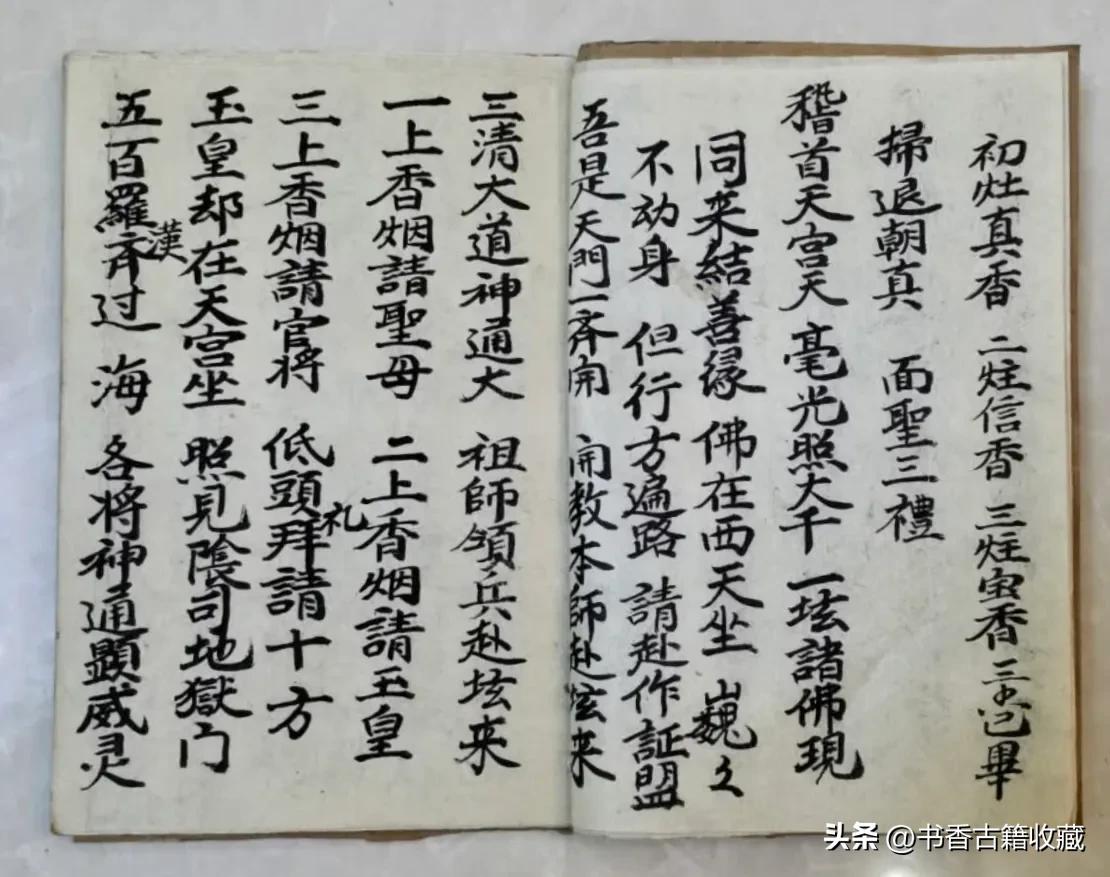 初炷真香 二炷信香 三炷宝香 三畢
掃退朝真 面聖三禮
稽首天宮天 毫光照大千 一坛諸佛現
同来結善缘 佛在西天坐 巍々
不动身 但行方遍路 請赴作証盟
吾是天門一斉開 開教本師赴坛来
三清大道神通大 祖師領兵赴坛来
一上香烟請聖母 二上香烟請玉皇
三上香烟請官将 低頭拜礼請十方
玉皇却在天宫坐 照見陰司地獄门
五百羅漢斉过海 各将神通顯威灵
头条 @书香古籍收藏